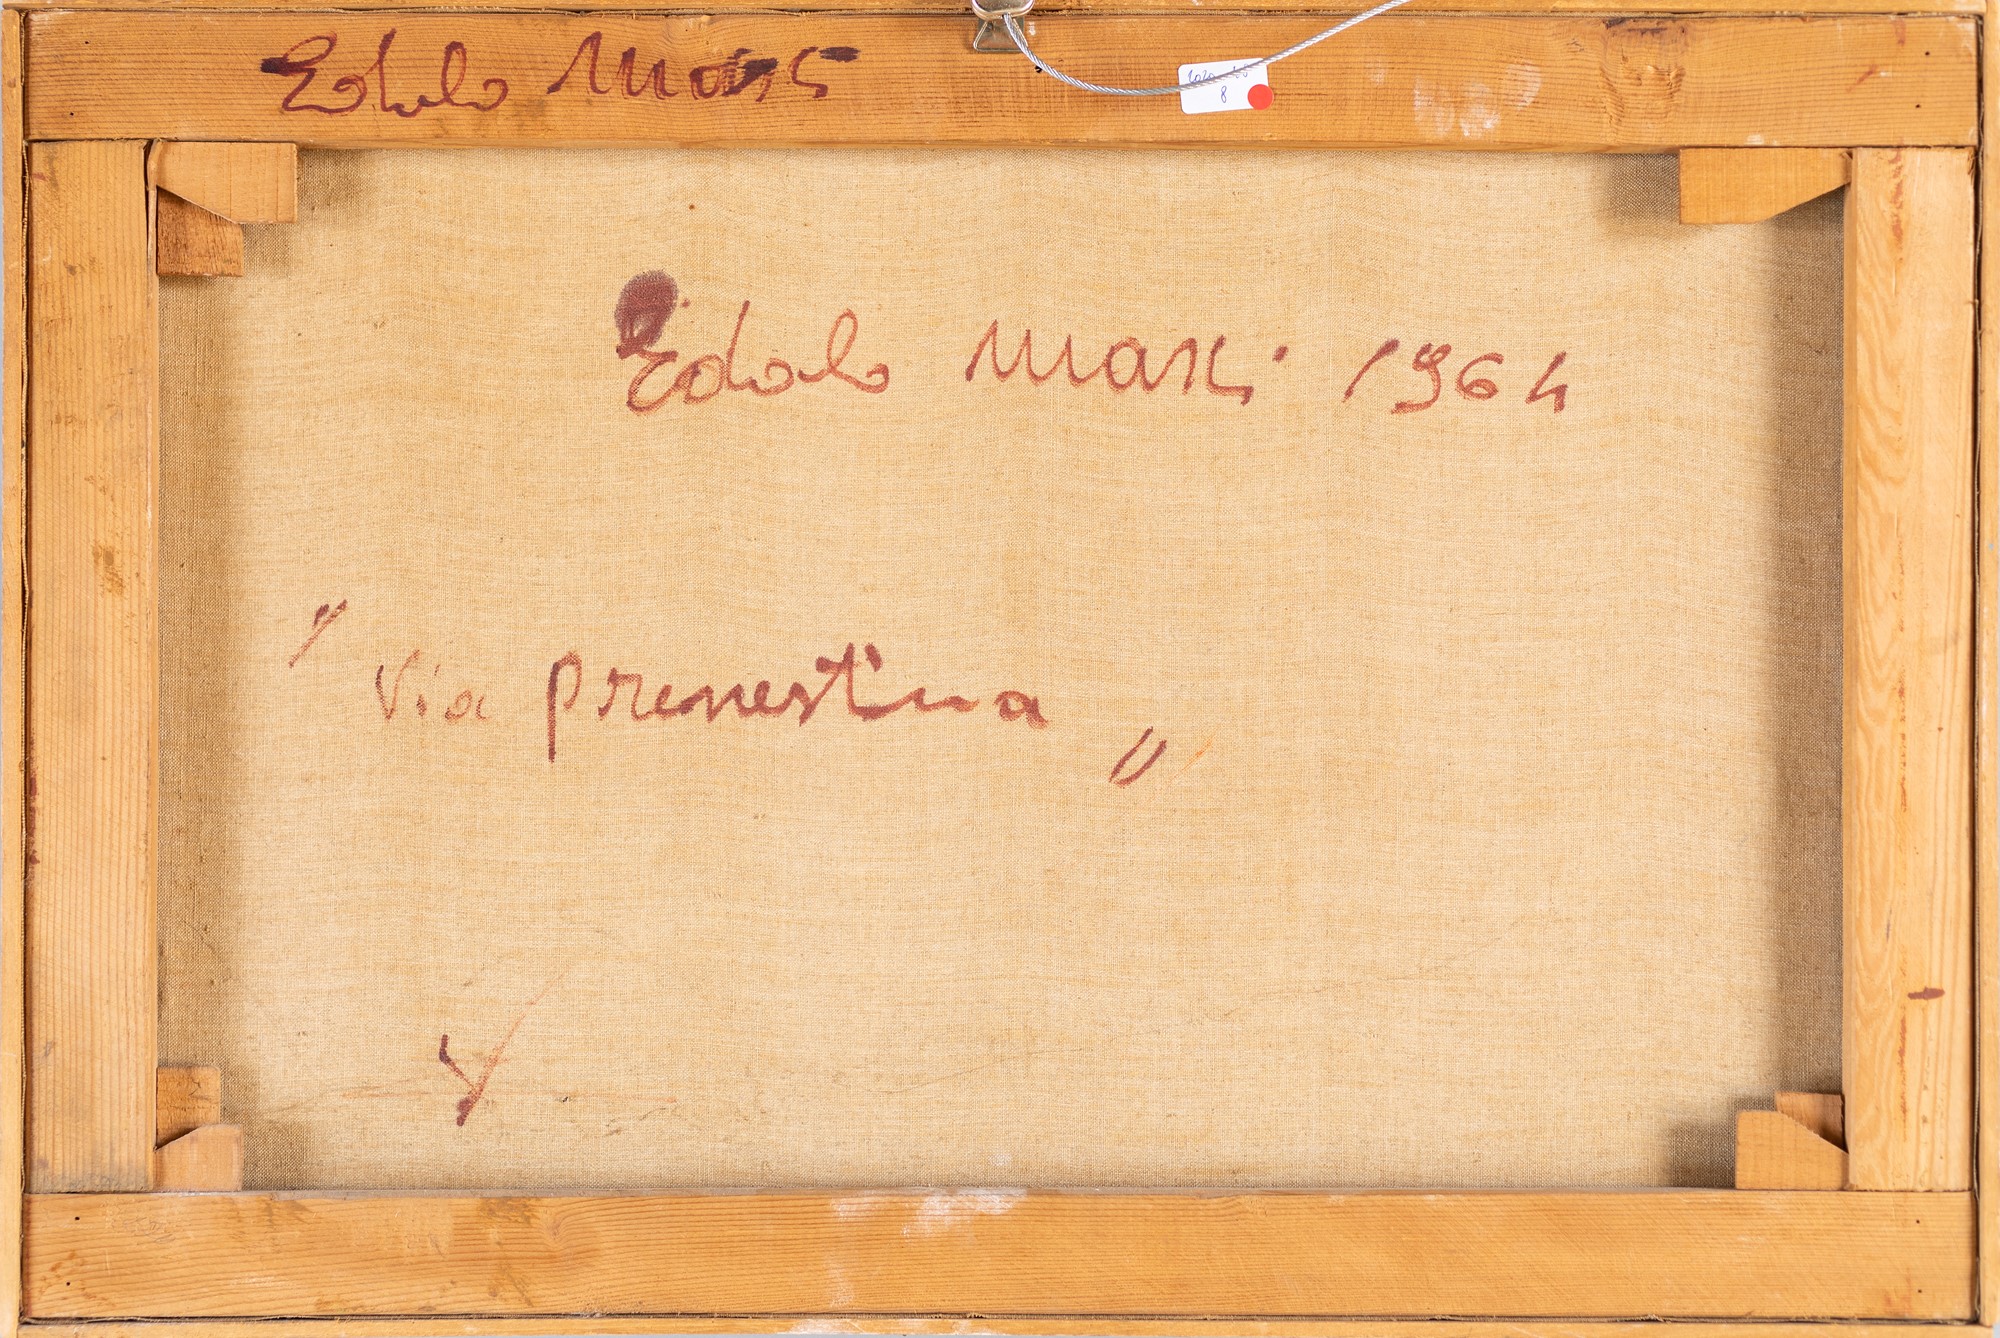 Edolo Masci
8
Edolo Masci 1964
"Via Prenestina"